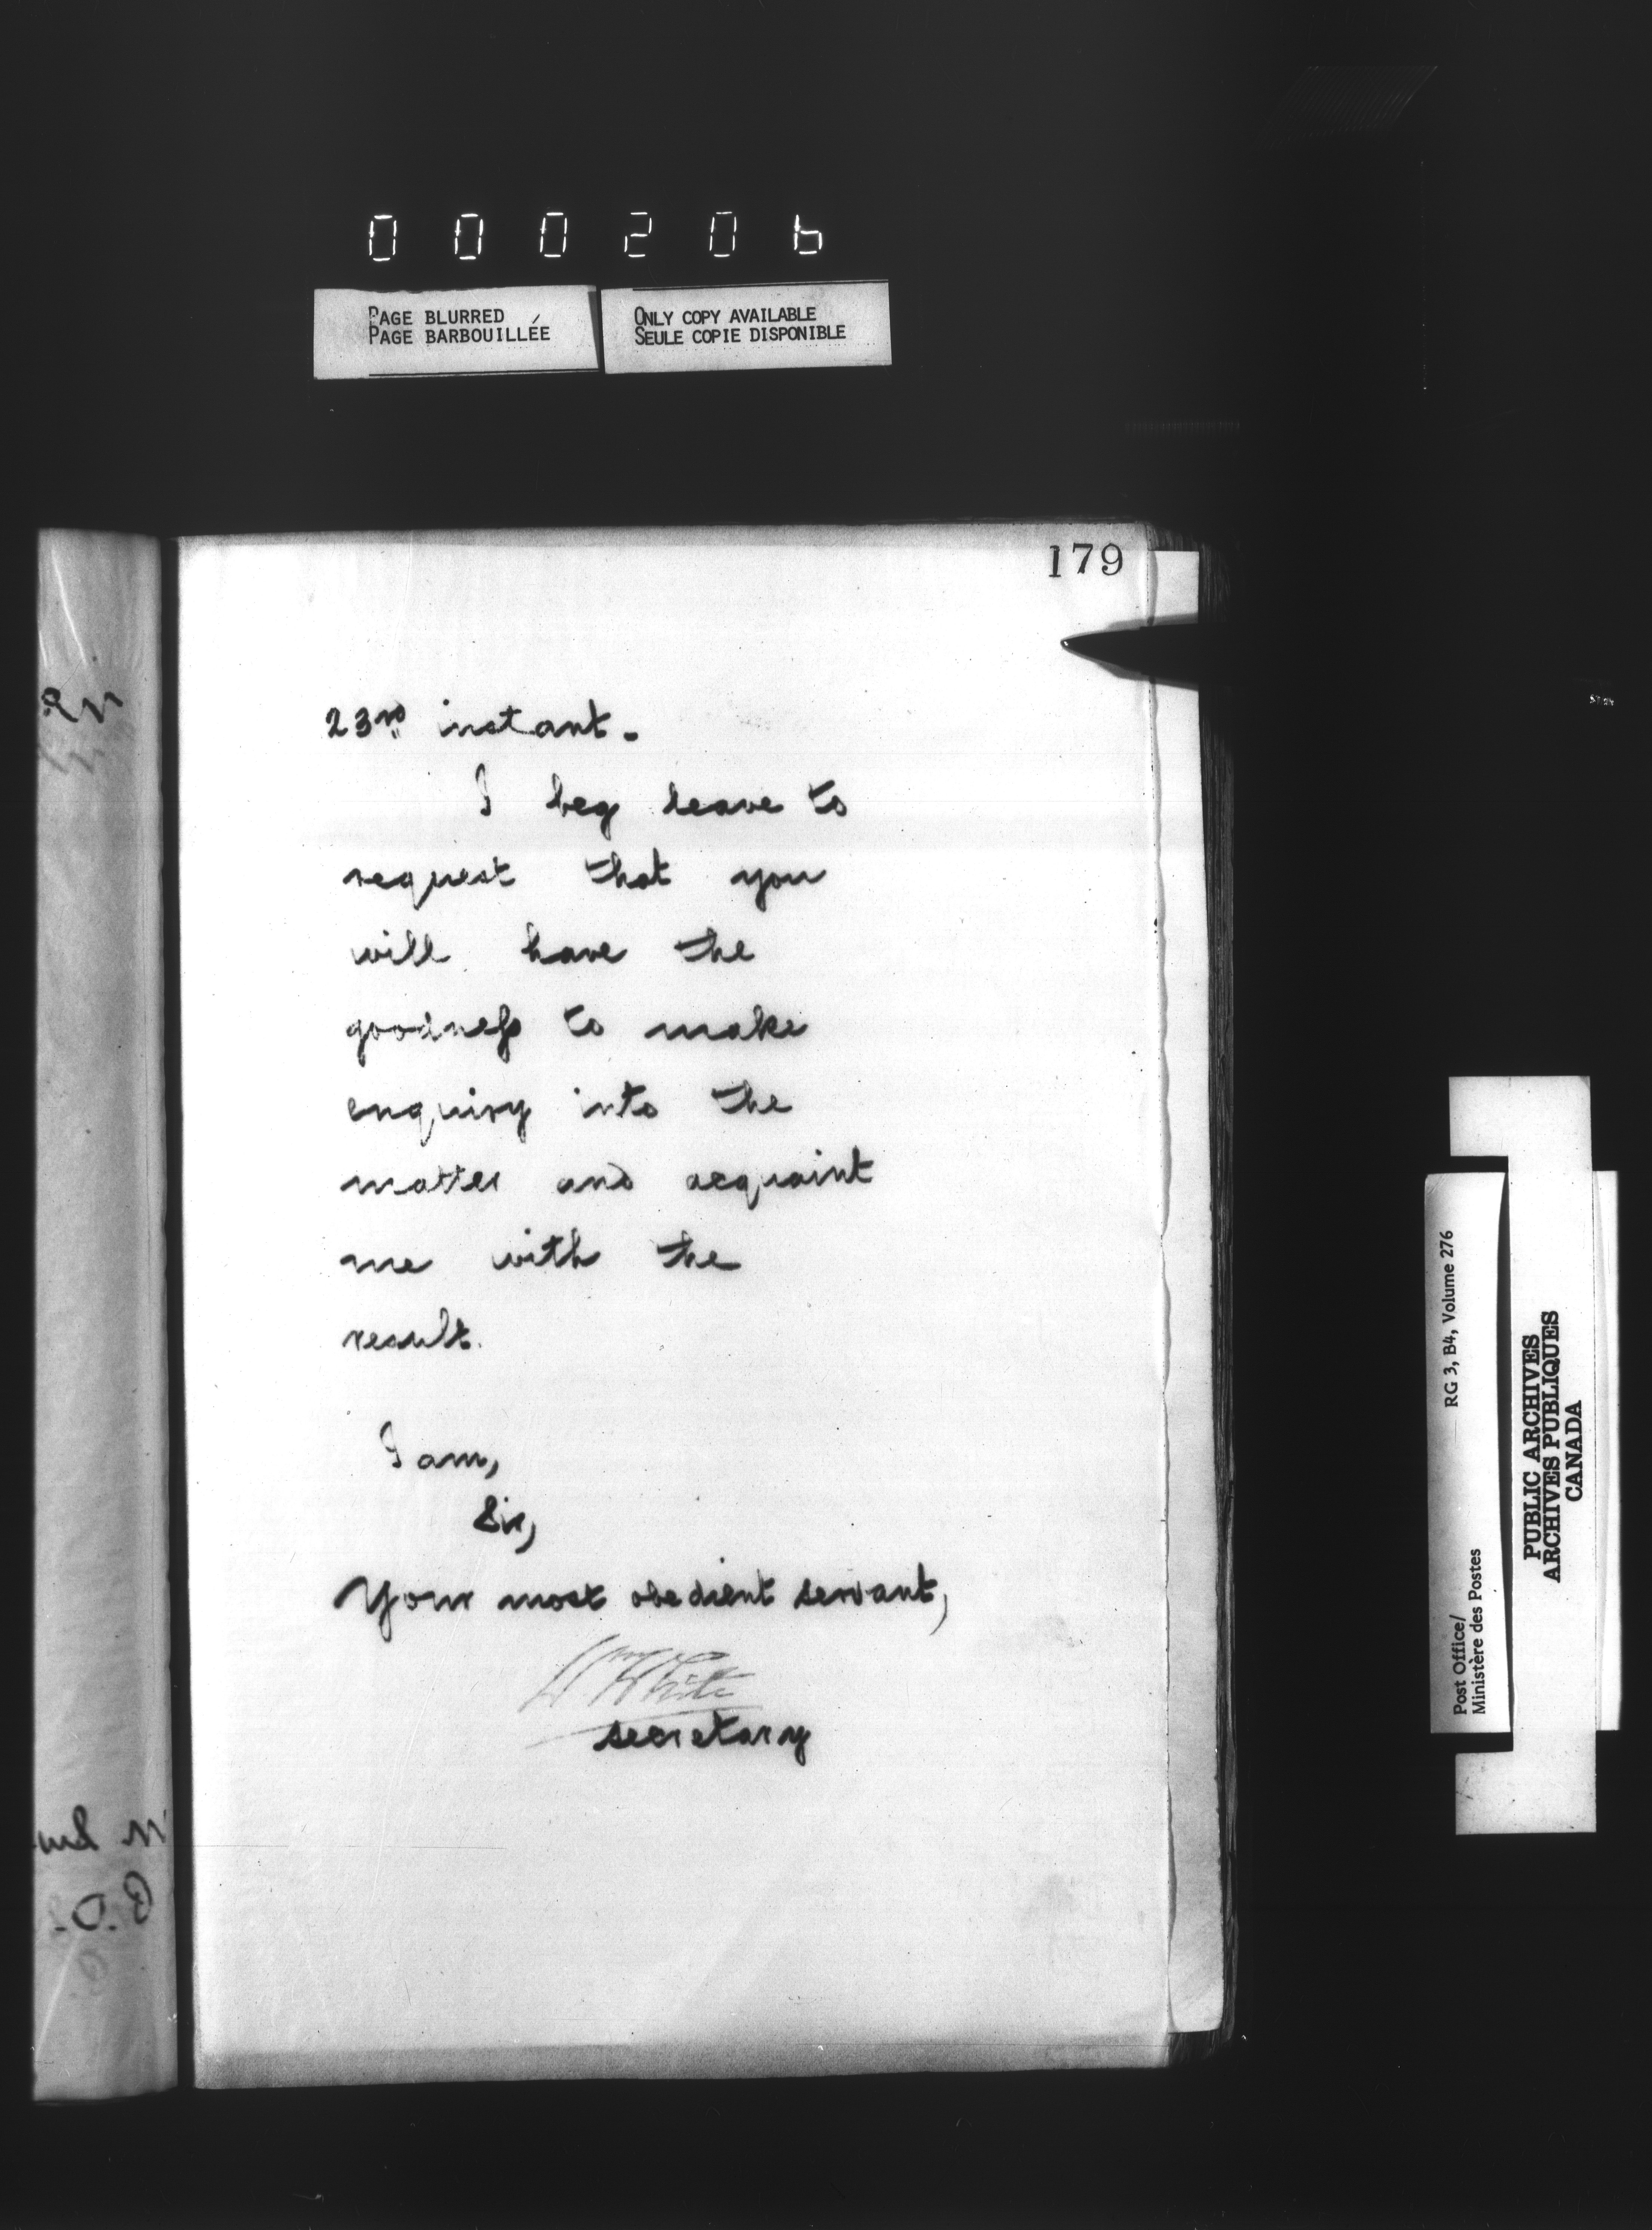 000206
PAGE BLURRED
PAGE BARBOUILLÉE
ONLY COPY AVAILABLE
SEULE COPIE DISPONIBLE
179
23rd instant.
I beg leave to
request that you
will have the
goodneſs to make
enquiry into the
matter and acquaint
me with the
result.
I am,
Sir,
Your most obedient servant,
Wm White
secretary
Post Office/ RG 3, B4, Volume 276
Ministère des Postes
PUBLIC ARCHIVES
ARCHIVES PUBLIQUES
CANADA